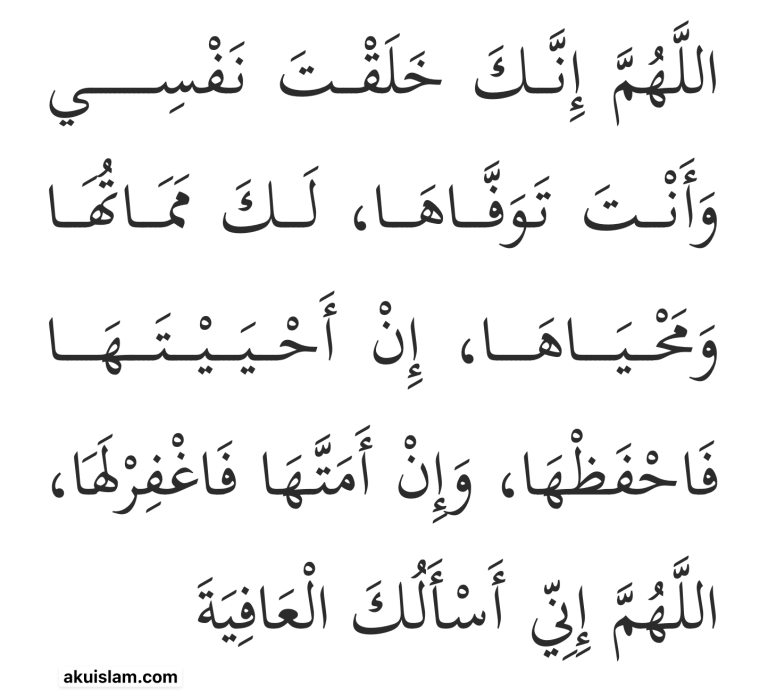 اللَّهُمَّ إِنَّكَ خَلَقْتَ نَفْسِي
وَأَنْتَ تَوَفَّاهَا، لَكَ مَمَاتُهَا
وَمَحْيَاهَا، إِنْ أَحْيَيْتَهَا
فَاحْفَظْهَا، وَإِنْ أَمَتَّهَا فَاغْفِرْ لَهَا،
اللَّهُمَّ إِنِّي أَسْأَلُكَ الْعَافِيَةَ
akuislam.com